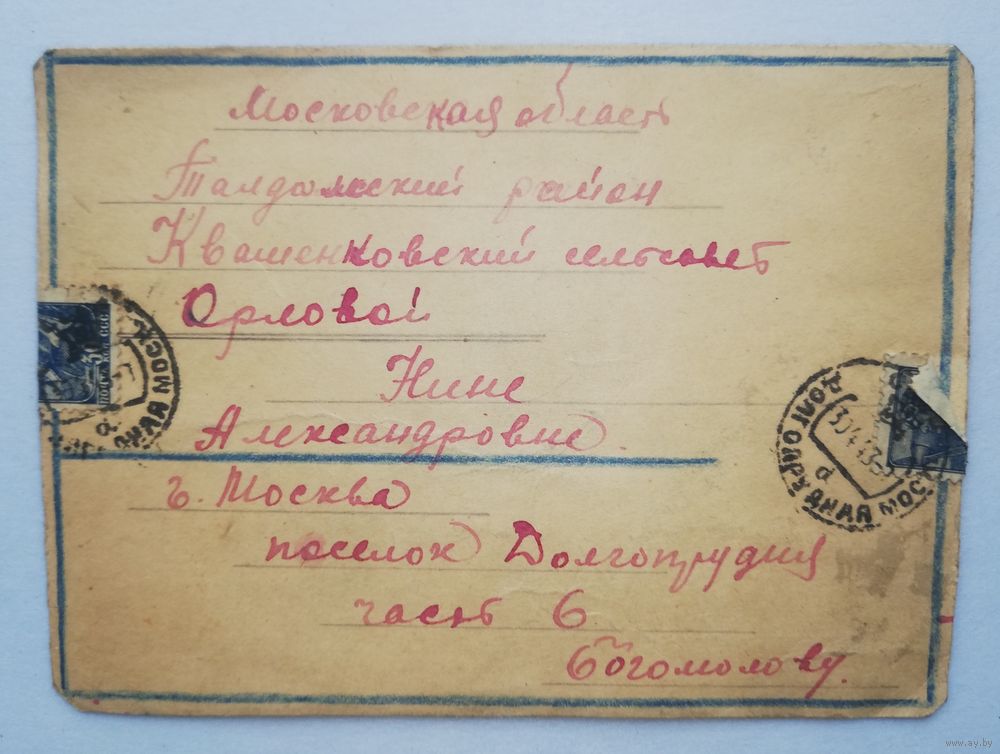 Московская область
Талдомский район
Квашенковский сельсовет
Орловой
Нине
Александровне.
г. Москва
поселок Долгопрудния
часть 6
Богомолову.
30
ПОЧТА
СССР
ДОЛГОПРУДНАЯ МОСК
www.ay.by